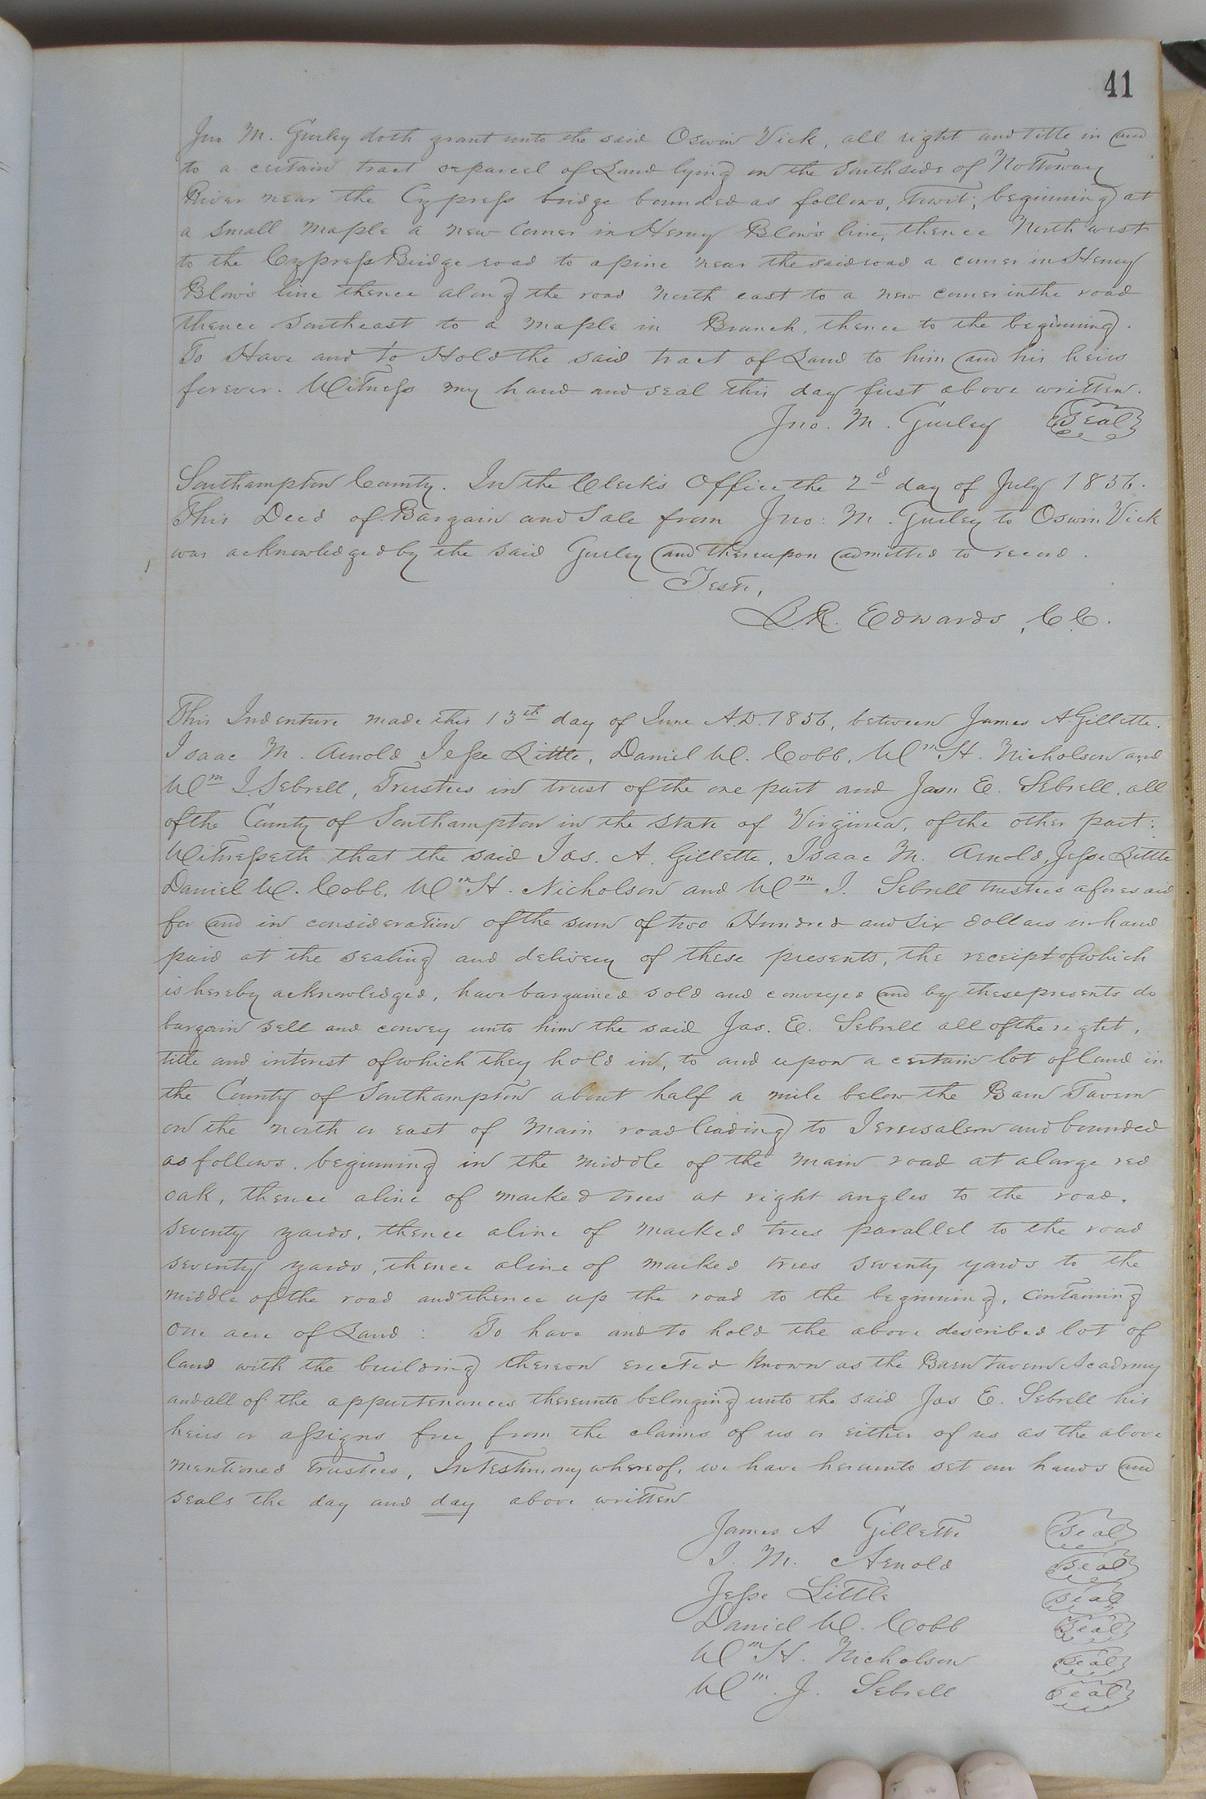 41
Jno M. Gurley doth grant unto the said Oswin Vick, all right and title in and
to a certain tract or parcel of Land lying on the South side of Nottoway
River near the Cypress bridge bounded as follows, Towit; beginning at
a small maple a new Corner in Henry Blow's line, thence North west
to the Cypress Bridge road to a pine near the said road a corner in Henry
Blow's line thence along the road North east to a new corner in the road
thence Southeast to a maple in Branch, thence to the beginning.
To Have and to Hold the said tract of Land to him and his heirs
forever. Witness my hand and seal this day first above written.
Jno. M. Gurley Seal
Southampton County. In the Clerk's Office the 2d day of July 1856.
This Deed of Bargain and Sale from Jno: M. Gurley to Oswin Vick
was acknowledged by the said Gurley and thereupon admitted to record.
Teste,
L.R. Edwards, C.C.
This Indenture made this 13th day of June A.D. 1856, between James A Gillette.
Isaac M. Arnold Jesse Little, Daniel W. Cobb, Wm H. Nicholson and
Wm J. Sebrell, Trustees in trust of the one part and Jas. E. Sebrell, all
of the County of Southampton in the State of Virginia, of the other part:
Witnesseth that the said Jas. A. Gillette, Isaac M. Arnold, Jesse Little
Daniel W. Cobb, Wm H. Nicholson and Wm J. Sebrell trustees aforesaid
for and in consideration of the sum of two Hundred and six dollars in hand
paid at the sealing and delivery of these presents, the receipt of which
is hereby acknowledged, have bargained sold and conveyed and by these presents do
bargain sell and convey unto him the said Jas. E. Sebrell all of the right,
title and interest of which they hold in, to and upon a certain lot of land in
the County of Southampton about half a mile below the Barn Tavern
on the north or east of Main road leading to Jerusalem and bounded
as follows. beginning in the middle of the main road at a large red
oak, thence a line of marked trees at right angles to the road.
seventy yards, thence a line of marked trees parallel to the road
seventy yards, thence a line of marked trees seventy yards to the
middle of the road and thence up the road to the beginning, containing
one acre of Land: To have and to hold the above described lot of
land with the building thereon erected known as the Barn Tavern Academy
and all of the appurtenances thereunto belonging unto the said Jas E. Sebrell his
heirs or assigns free from the claims of us or either of us as the above
mentioned trustees, In Testimony whereof, we have hereunto set our hands and
seals the day and day above written
James A Gillette Seal
I. M. Arnold Seal
Jesse Little Seal
Daniel W. Cobb Seal
Wm H. Nicholson Seal
Wm. J. Sebrell Seal